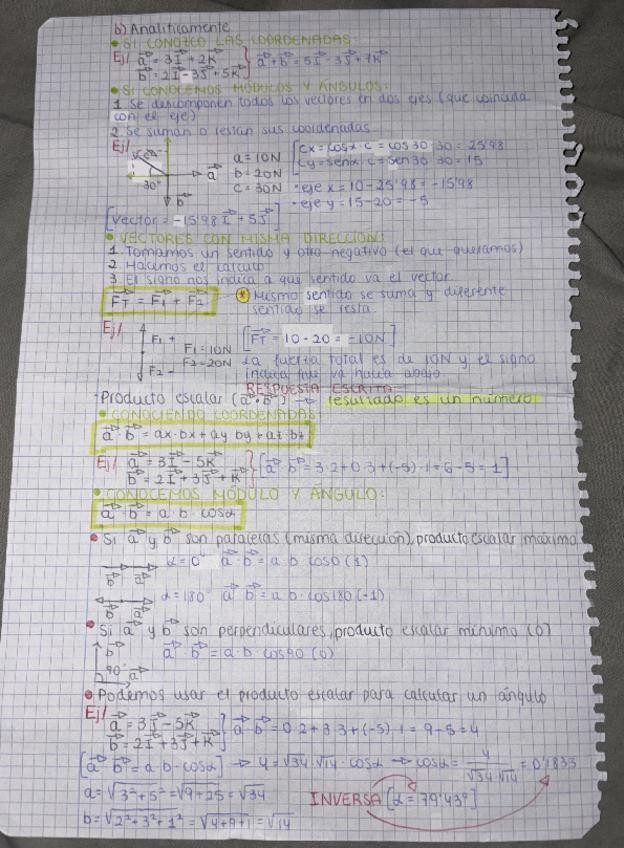 b) Analíticamente
• SI CONOZCO LAS COORDENADAS:
Ej/ a = 3i + 2k } a + b = 5i - 3j + 7k
b = 2i - 3j + 5k
• SI CONOCEMOS MÓDULOS Y ÁNGULOS:
1. Se descomponen todos los vectores en dos ejes (que coincida
con el eje)
2. Se suman o restan sus coordenadas
Ej/
30°
a
b
a = 10N
b = 20N
c = 30N
[Cx = cosα · c = cos30 · 30 = 25'98
Cy = senα · c = sen30 · 30 = 15
• eje x = 10 - 25'98 = -15'98
• eje y = 15 - 20 = -5
[Vector = -15'98i + 5j]
• VECTORES CON MISMA DIRECCIÓN:
1. Tomamos un sentido y otro negativo (el que queramos)
2. Hacemos el cálculo
3. El signo nos indica a que sentido va el vector
FT = F1 + F2
* Mismo sentido se suma y diferente
sentido se resta.
Ej/
F1 +
F1 = 10N
F2 = 20N
F2 -
[FT = 10 - 20 = -10N]
La fuerza total es de 10N y el signo
indica que va hacia abajo.
RESPUESTA ESCRITA
- Producto escalar (a · b) → resultado es un número
• CONOCIENDO COORDENADAS:
a · b = ax · bx + ay · by + az · bz
Ej/ a = 3i - 5k } [a · b = 3·2 + 0·3 + (-5)·1 = 6 - 5 = 1]
b = 2i + 3j + k
• CONOCEMOS MÓDULO Y ÁNGULO:
a · b = a · b · cosα
• Si a y b son paralelas (misma dirección), producto escalar máximo
b a α = 0° a · b = a · b · cos0 (1)
b a α = 180° a · b = a · b · cos180 (-1)
• Si a y b son perpendiculares, producto escalar mínimo (0)
b
90° a
a · b = a · b · cos90 (0)
• Podemos usar el producto escalar para calcular un ángulo
Ej/ a = 3j - 5k } a · b = 0·2 + 3·3 + (-5)·1 = 9 - 5 = 4
b = 2i + 3j + k
[a · b = a · b · cosα] → 4 = √34 · √14 · cosα → cosα = 4 / √34 · √14 = 0'1833
a = √3² + 5² = √9 + 25 = √34
INVERSA [α = 79'43°]
b = √2² + 3² + 1² = √4 + 9 + 1 = √14